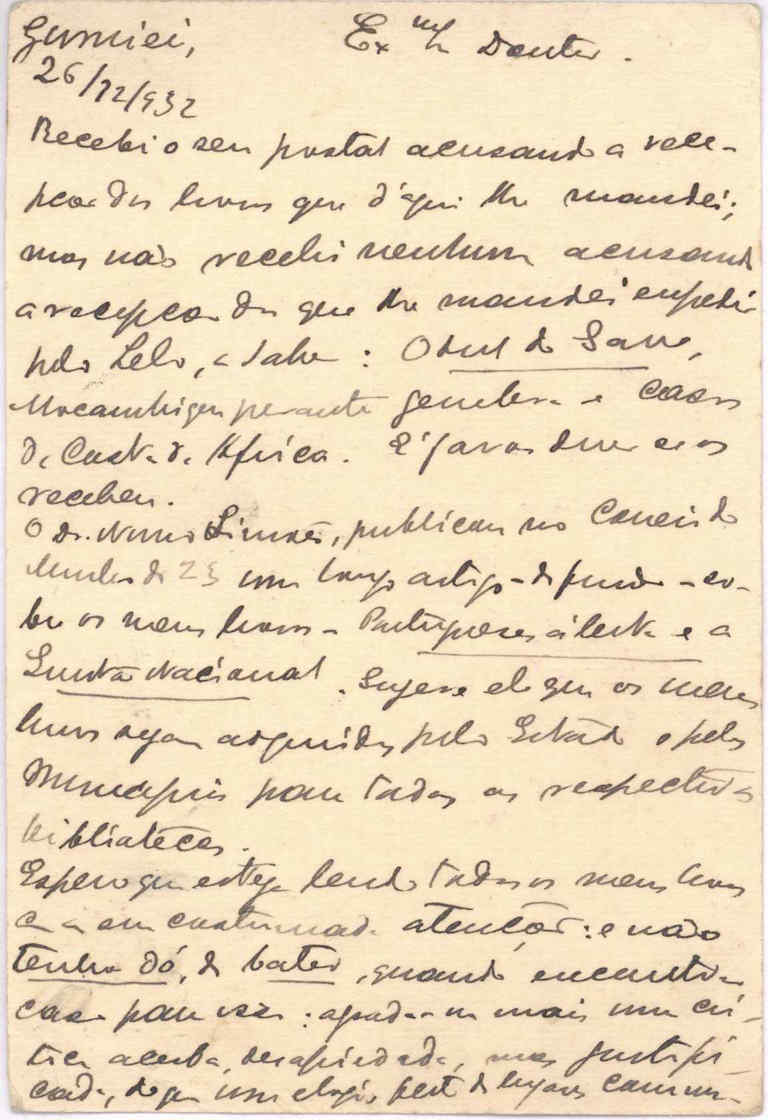 Gumiei,
26/12/932
Ex.mo Doutor.
Recebi o seu postal acusando a rece-
pção dos livros que d'aqui lhe mandei;
mas não recebi nenhum acusando
a recepção dos que lhe mandei expedir
pelo Lelo, a saber: O Sul do Save,
Moçambique perante Genebra e Casos
da Costa de Africa. É favor dizer se os
recebeu.
O dr. Nuno Simões, publicou no Comercio
de 23 um longo artigo - de fundo - so-
bre os meus livros - Portugueses á lerta e a
Nacional. Sugere ele que os meus
livros sejam adquiridos pelo Estado e pelos
Municipios para todas as respectivas
bibliotécas.
Espero que esteja lendo todos os meus livros
com a sua costumada atenção: e não
tenha dó, de bater, quando encontrar
caso para isso: agrada-me mais uma cri-
tica acerba, desapiedada, mas justifi-
cada, do que um elogio feito de lugares comuns-